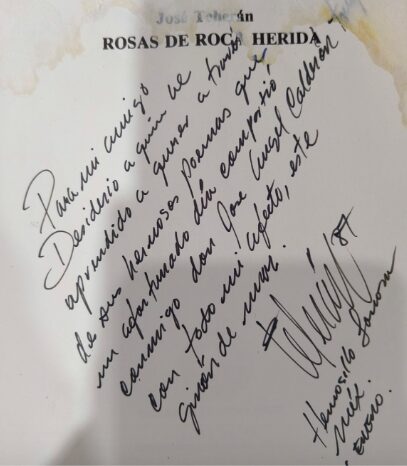 José Teherán
ROSAS DE ROCA HERIDA
Para mi amigo
Desiderio a quien he
aprendido a querer a través
de sus hermosos poemas que,
un afortunado día compartió
conmigo don José Angel Calderón T
con todo mi afecto, este
girón de mar.
87
Hermosillo Sonora
Méx.
Enero.